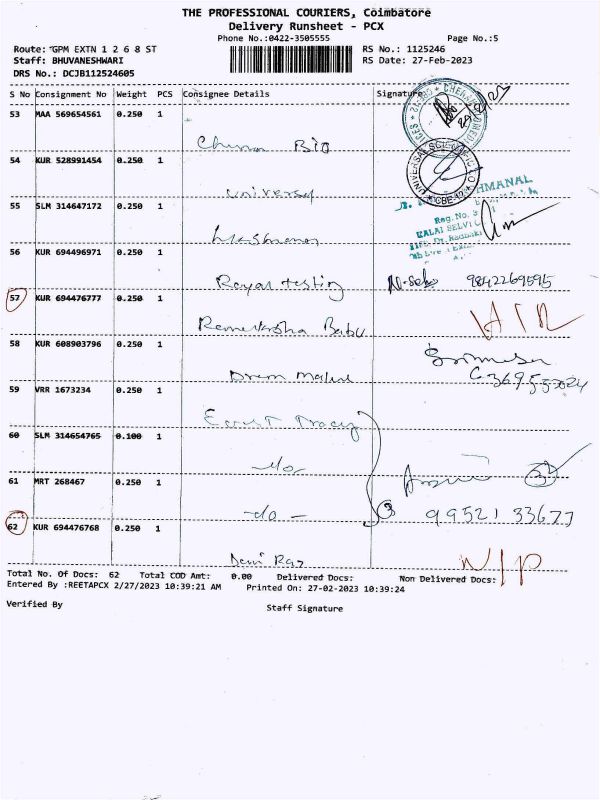 THE PROFESSIONAL COURIERS, Coimbatore
Delivery Runsheet - PCX
Phone No.:0422-3505555 Page No.:5
Route: GPM EXTN 1 2 6 8 ST RS No.: 1125246
Staff: BHUVANESHWARI RS Date: 27-Feb-2023
DRS No.: DCJB112524605
S No Consignment No Weight PCS Consignee Details Signature
53 MAA 569654561 0.250 1
Bio
54 KUR 528991454 0.250 1
UNIVERSAL SCIENTIFIC CO
CBE-12
universal
HMANAL
55 SLM 314647172 0.250 1
Reg. No. 3
KALAI SELVI
56 KUR 694496971 0.250 1
Royal testing 9842269595
57 KUR 694476777 0.250 1
Babu
58 KUR 608903796 0.250 1
59 VRR 1673234 0.250 1
60 SLM 314654765 0.100 1
-do-
61 MRT 268467 0.250 1
-do- 99521 33677
62 KUR 694476768 0.250 1
Devi Raj
Total No. Of Docs: 62 Total COD Amt: 0.00 Delivered Docs: Non Delivered Docs:
Entered By :REETAPCX 2/27/2023 10:39:21 AM Printed On: 27-02-2023 10:39:24
Verified By Staff Signature